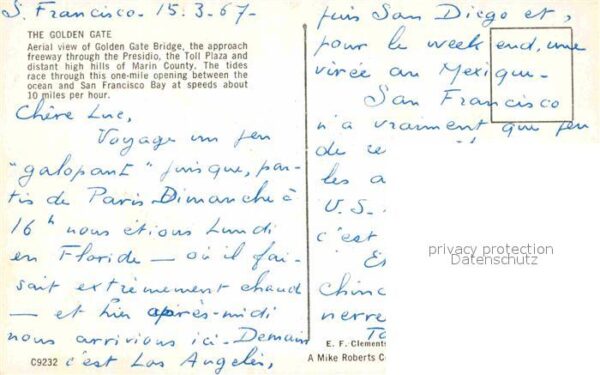 S. Francisco. 15.3.67-
THE GOLDEN GATE
Aerial view of Golden Gate Bridge, the approach
freeway through the Presidio, the Toll Plaza and
distant high hills of Marin County. The tides
race through this one-mile opening between the
ocean and San Francisco Bay at speeds about
10 miles per hour.
Chère Luc,
Voyage un peu
"galopant" puisque, par-
tis de Paris Dimanche à
16h nous étions Lundi
en Floride - où il fai-
sait extrêmement chaud
- et hier après-midi
nous arrivions ici. Demain
c'est Los Angeles,
C9232
puis San Diego et,
pour le week end, une
virée au Mexique.
San Francisco
n'a vraiment que peu
de
les a
U.S.
c'est
chinc
nerre
E. F. Clements
A Mike Roberts C
privacy protection
Datenschutz